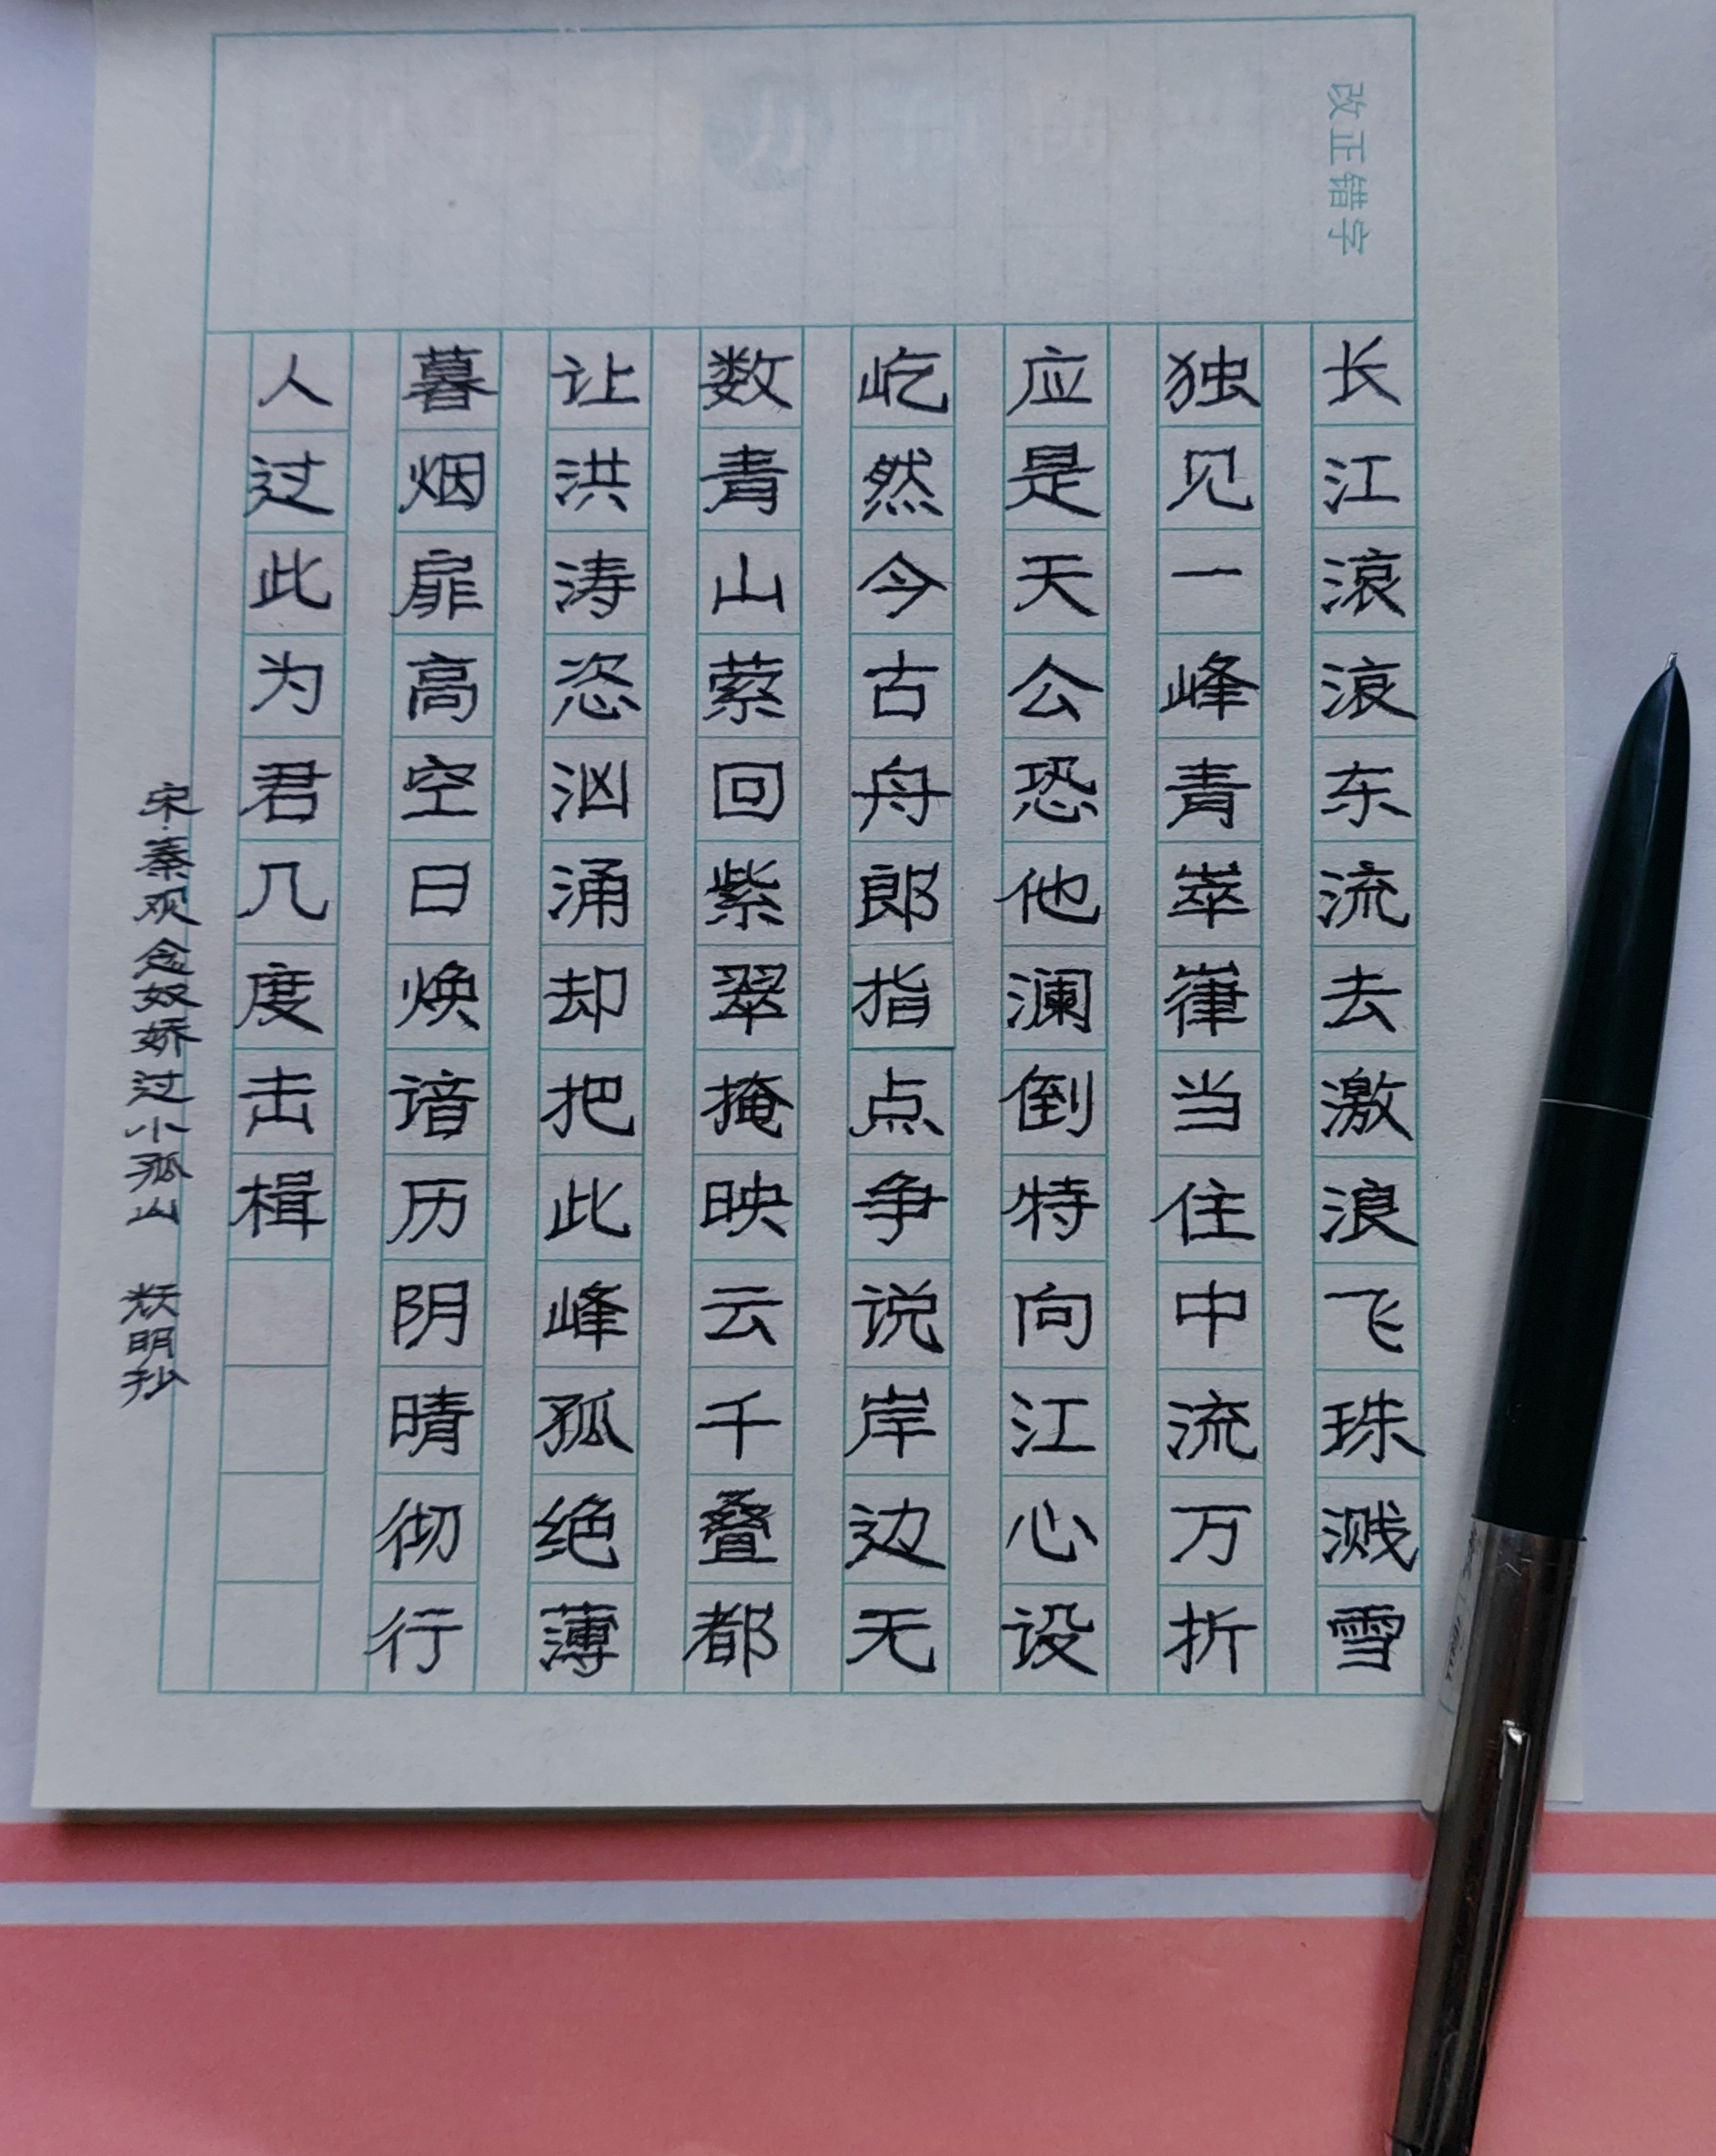 改正错字
长江滚滚东流去激浪飞珠溅雪
独见一峰青崒嵂当住中流万折
应是天公恐他澜倒特向江心设
屹然今古舟郎指点争说岸边无
数青山萦回紫翠掩映云千叠都
让洪涛恣汹涌却把此峰孤绝薄
暮烟扉高空日焕谙历阴晴彻行
人过此为君几度击楫
宋·秦观念奴娇过小孤山 明抄